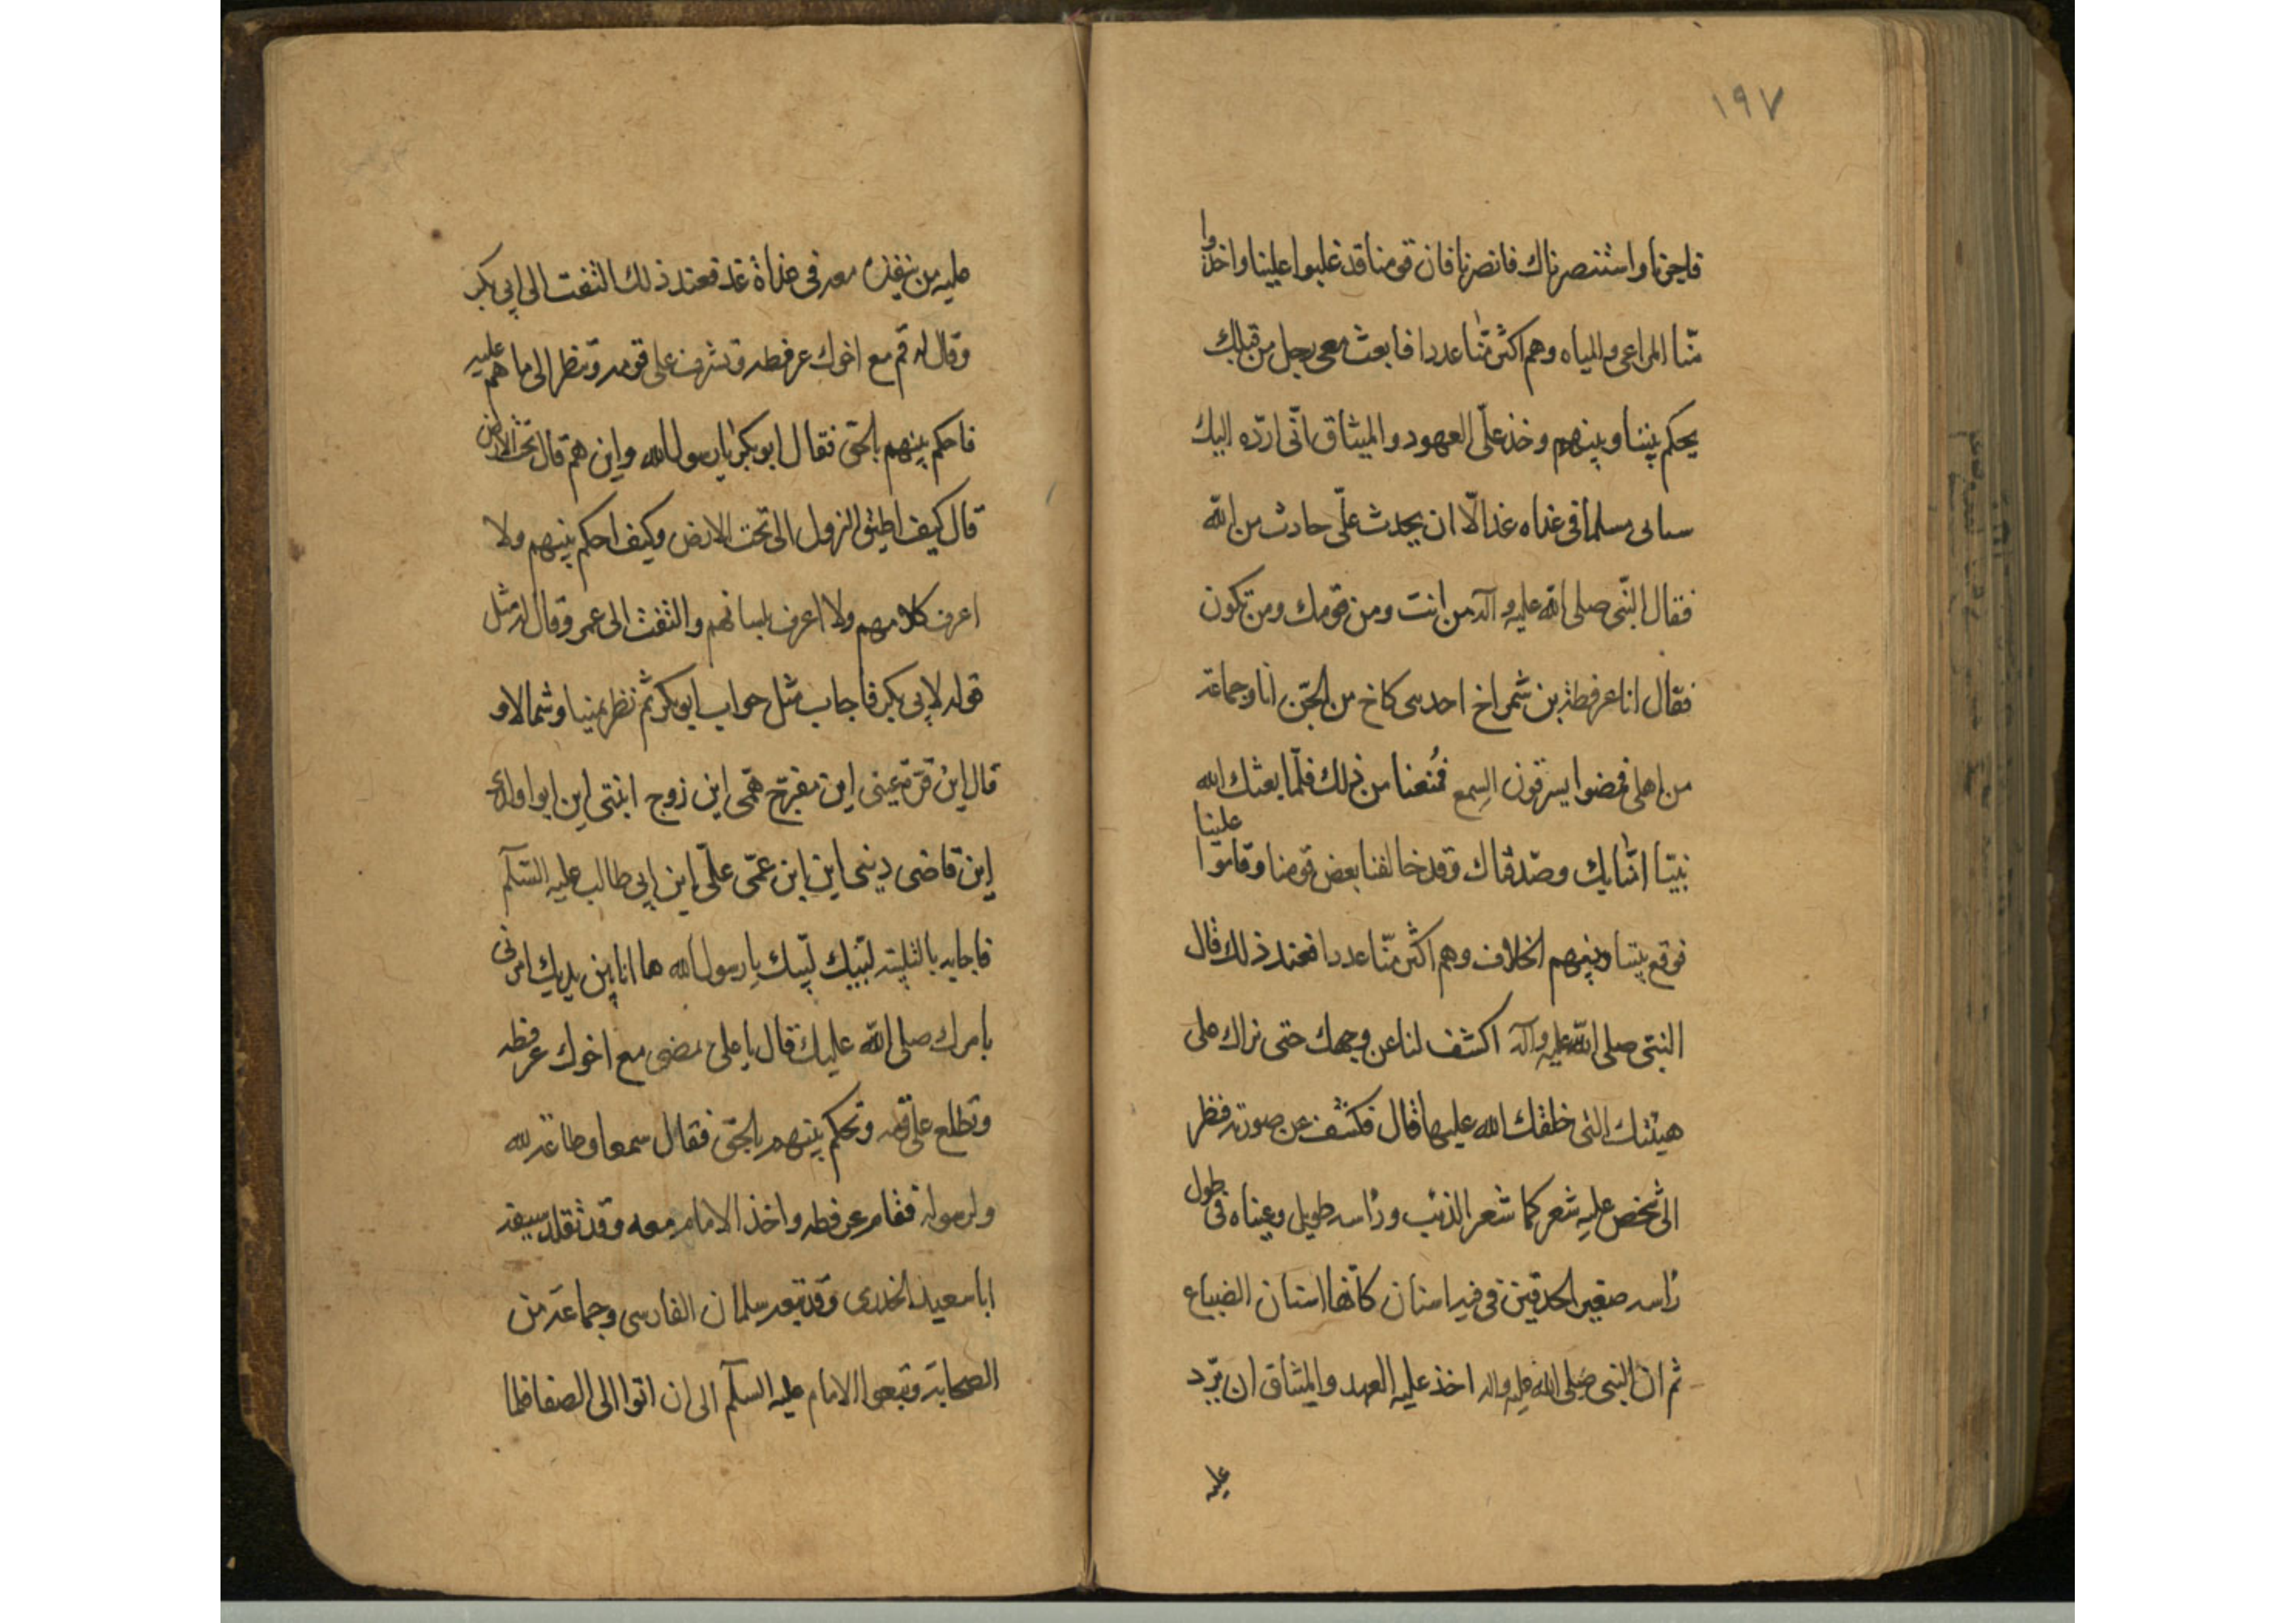 ١٩٧
فاجرنا واستنصرناك فانصرنا فان قومنا قد غلبوا علينا واخذوا
منّا المراعى والمياه وهم اكثر منّا عددا فابعث معى رجل من قبلك
يحكم بيننا وبينهم وخذ علىّ العهود والميثاق انّى اردّه اليك
سالمى مسلما فى غداه غد الّا ان يحدث علىّ حادث من الله
فقال النّبى صلى الله عليه وآله من انت ومن قومك ومن تكون
فقال انا عرفطه بن شمراخ احد بنى كاخ من الجنّ انا وجماعة
من اهلى فمضوا يسترقون السمع فمُنعنا من ذلك فلمّا بعثك الله
نبيّا امنّا بك وصدّقناك وقد خالفنا بعض قومنا وقاموا علينا
فوقع بيننا وبينهم الخلاف وهم اكثر منّا عددا فعند ذلك قال
النبى صلى الله عليه وآله اكشف لنا عن وجهك حتى نراك على
هيئتك التى خلقك الله عليها قال فكشف عن صورته فنظر
الى شخص عليه شعر كما شعر الذئب وراسه طويل وعيناه فى طول
راسه صغير الحدقتين فى فيه اسنان كانّها اسنان الضباع
ثم انّ النبى صلى الله عليه واله اخذ عليه العهد والميثاق ان يردّ
عليه
عليه من ينفذه معه فى غداة غد فعند ذلك التفت الى ابى بكر
وقال له قم مع اخوك عرفطه وتشرف على قومه وتنظر الى ما هم عليه
فاحكم بينهم بالحق فقال ابو بكر يا رسول الله واين هم قال تحت الارض
قال كيف اطيق النزول الى تحت الارض وكيف احكم بينهم ولا
اعرف كلامهم ولا اعرف بلسانهم والتفت الى عمر وقال له مثل
قوله لابى بكر فاجاب مثل جواب ابو بكر ثم نظر يمينا وشمالا و
قال اين قرّة عينى اين مفرّج همّى اين زوج ابنتى اين ابو اولادى
اين قاضى دينى اين ابن عمّى علىّ ابن ابى طالب عليه السّلم
فاجابه بالتلبيته لبّيك لبّيك يا رسول الله ها انا بين يديك امرنى
بامرك صلى الله عليك قال يا على تمضى مع اخوك عرفطه
وتطلع على قومه وتحكم بينهم بالحق فقال سمعا وطاعة لله
ولرسوله فقام عرفطه واخذ الامام معه وقد تقلد سيفه
ابا سعيد الخدرى وقد تبعه سلمان الفارسى وجماعة من
الصحابة وتبعوا الامام عليه السلم الى ان اتوا الى الصفا فلما